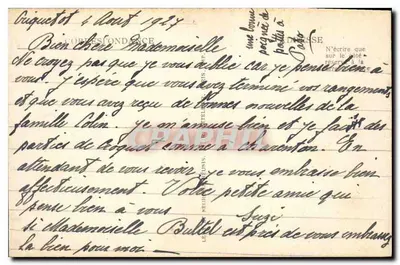 Criquetot 4 Août 1927
CORRESPONDANCE
une bonne
poignée de
pattes à
N'écrire que
sur le côté
réservé à la
Bien chère Mademoiselle
Ne croyez pas que je vous oublie car je pense bien à
vous. J'espère que vous avez terminé vos rangements
et que vous avez reçu de bonnes nouvelles de la
famille Colin. Je m'amuse bien et je fais des
parties de croquet comme à Charenton. En
attendant de vous revoir je vous embrasse bien
affectueusement. Votre petite amie qui
pense bien à vous
Suzy
si Mademoiselle Bultel est près de vous embrassez
la bien pour moi